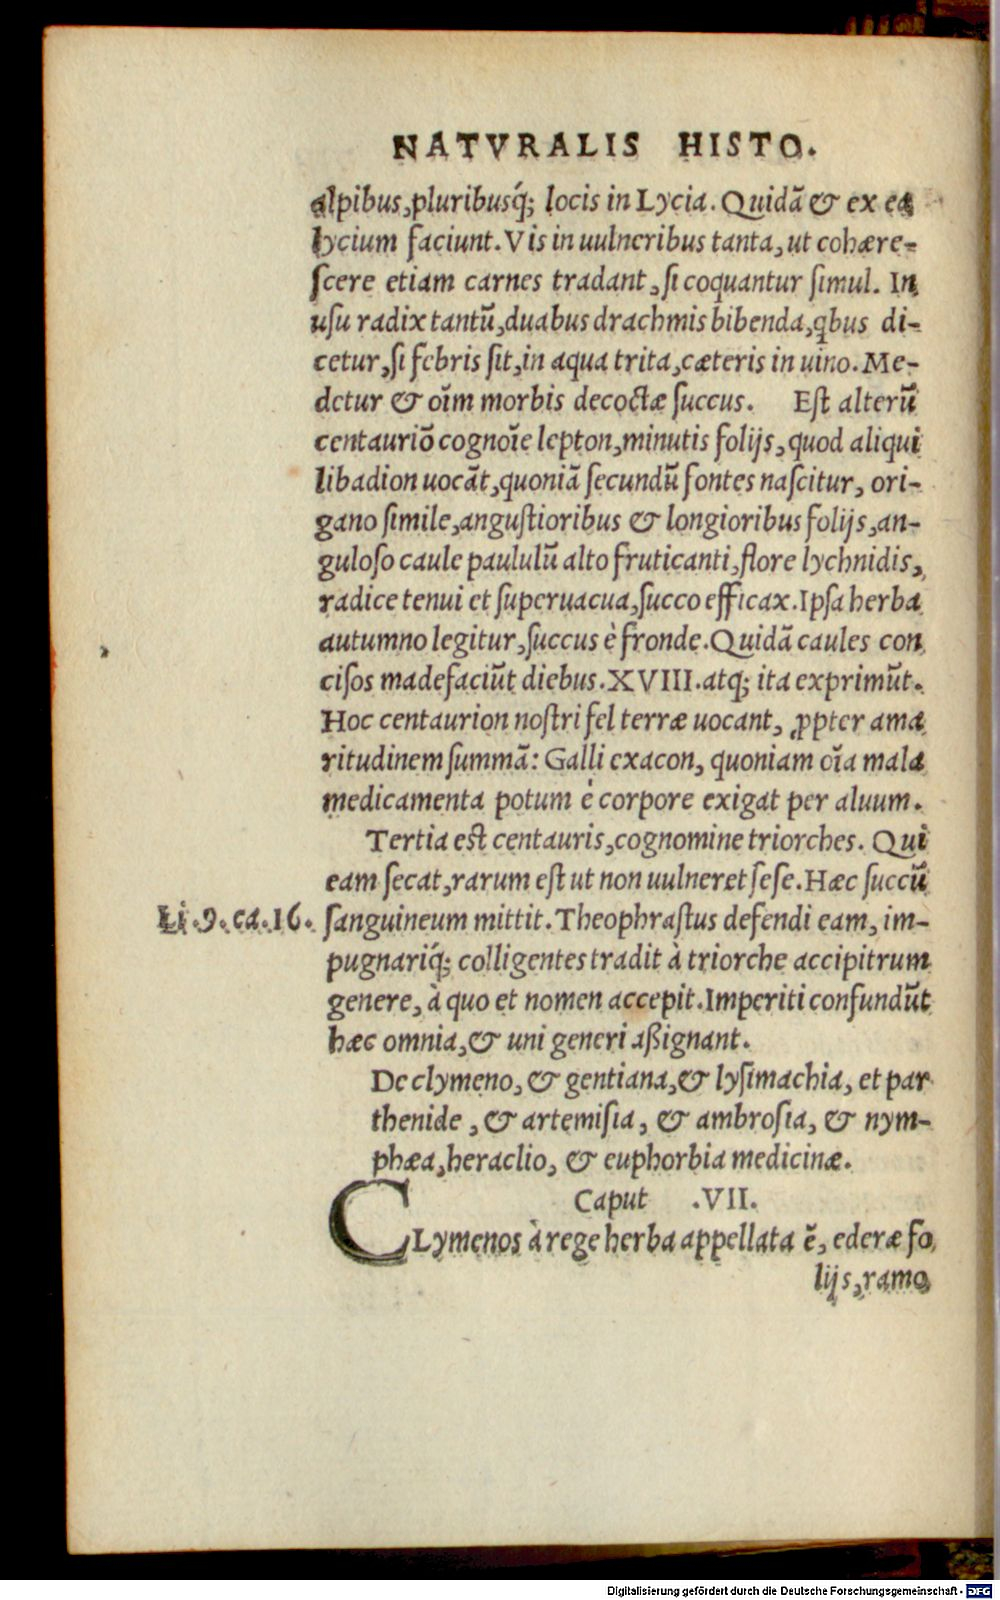 NATVRALIS HISTO.
alpibus, pluribusq́; locis in Lycia. Quidã & ex ea
lycium faciunt. Vis in uulneribus tanta, ut cohære-
ſcere etiam carnes tradant, ſi coquantur ſimul. In
uſu radix tantũ, duabus drachmis bibenda, qbus di-
cetur, ſi febris ſit, in aqua trita, cæteris in uino. Me-
detur & oĩm morbis decoctæ ſuccus. Eſt alterũ
centauriõ cognoĩe lepton, minutis folijs, quod aliqui
libadion uocãt, quoniã ſecundũ fontes naſcitur, ori-
gano ſimile, anguſtioribus & longioribus folijs, an-
guloſo caule paululũ alto fruticanti, flore lychnidis,
radice tenui et ſuperuacua, ſucco efficax. Ipſa herba
autumno legitur, ſuccus è fronde. Quidã caules con
ciſos madefaciũt diebus. XVIII. atq; ita exprimũt.
Hoc centaurion noſtri fel terræ uocant, ꝓpter ama
ritudinem ſummã: Galli exacon, quoniam oĩa mala
medicamenta potum è corpore exigat per aluum.
Tertia eſt centauris, cognomine triorches. Qui
eam ſecat, rarum eſt ut non uulneret ſeſe. Hæc ſuccũ
Li. 9. ca. 16. ſanguineum mittit. Theophraſtus defendi eam, im-
pugnariq́; colligentes tradit à triorche accipitrum
genere, à quo et nomen accepit. Imperiti confundũt
hæc omnia, & uni generi aßignant.
De clymeno, & gentiana, & lyſimachia, et par
thenide, & artemiſia, & ambroſia, & nym-
phæa, heraclio, & euphorbia medicinæ.
Caput .VII.
CLymenos à rege herba appellata ẽ, ederæ fo
lijs, ramo
Digitalisierung gefördert durch die Deutsche Forschungsgemeinschaft - DFG